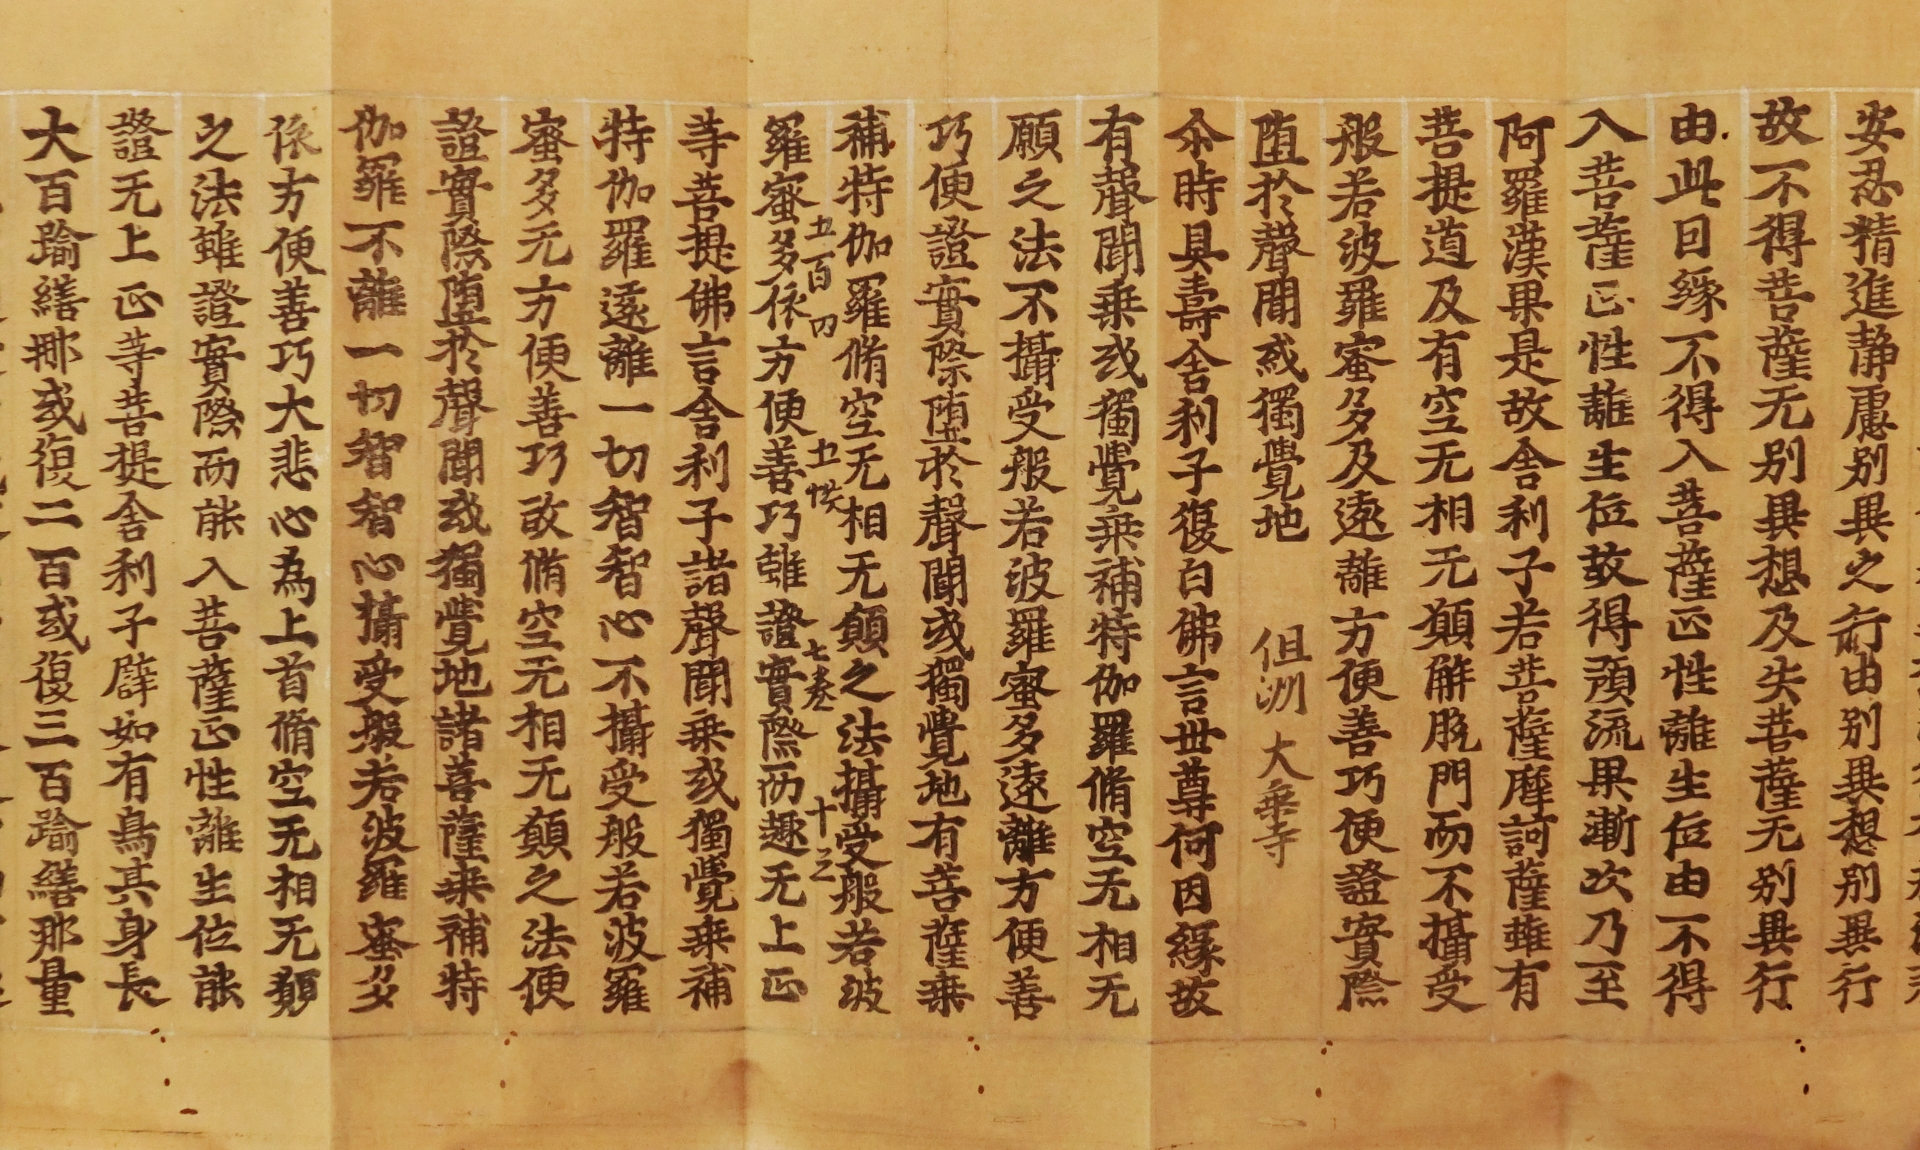 安忍精進静慮別異之行由別異想別異行
故不得菩薩无別異想及失菩薩无別異行
由此因緣不得入菩薩正性離生位由不得
入菩薩正性離生位故得預流果漸次乃至
阿羅漢果是故舍利子若菩薩摩訶薩雖有
菩提道及有空无相无願解脱門而不攝受
般若波羅蜜多及遠離方便善巧便證實際
堕於聲聞或獨覺地
但洲 大乗寺
尒時具壽舍利子復白佛言世尊何因緣故
有聲聞乗或獨覺乗補特伽羅脩空无相无
願之法不攝受般若波羅蜜多遠離方便善
巧便證實際堕於聲聞或獨覺地有菩薩乗
補特伽羅脩空无相无願之法攝受般若波
五百四 五帙 七巻 十之
羅蜜多依方便善巧雖證實際而趣无上正
等菩提佛言舍利子諸聲聞乗或獨覺乗補
特伽羅遠離一切智智心不攝受般若波羅
蜜多无方便善巧故脩空无相无願之法便
證實際堕於聲聞或獨覺地諸菩薩乗補特
伽羅不離一切智智心攝受般若波羅蜜多
依方便善巧大悲心為上首脩空无相无願
之法雖證實際而能入菩薩正性離生位能
證无上正等菩提舍利子譬如有鳥其身長
大百踰繕那或復二百或復三百踰繕那量